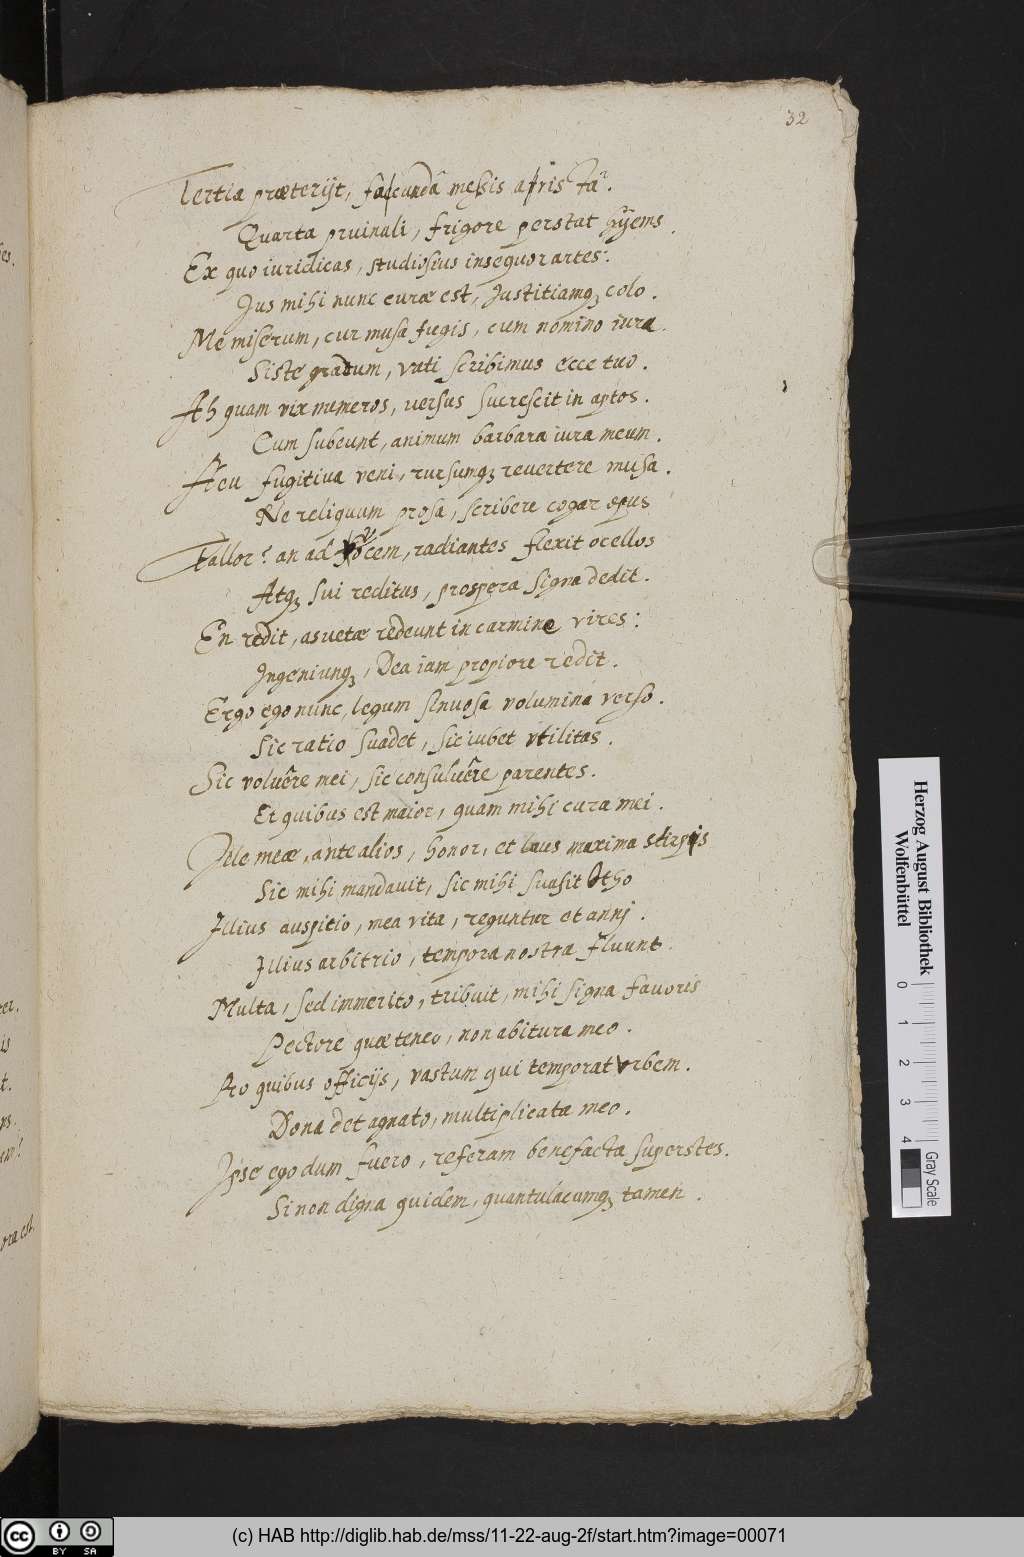 32
Tertia præterijt, fæcundâ messis
Quarta pruinali, frigore perstat hÿems.
Ex quo iuridicas, studiosius insequor artes:
Jus mihi nunc curæ est, Justitiamq; colo.
Me miserum, cur musa fugis, cum nomino iura.
Siste gradum, vati scribimus ecce tuo.
Ah quam vix numeros, uersus sucrescit in aptos.
Cum subeunt, animum barbara iura meum.
Heu fugitiua veni, rursumq; reuertere musa.
Ne reliquum prosa, scribere cogar opus
Fallor? an ad vocem, radiantes flexit ocellos
Atq; sui reditus, prospera signa dedit.
En redit, asuetæ redeunt in carmine vires:
Jngeniunq;, Dea iam propiore redit.
Ergo ego nunc, legum sinuosa volumina verso.
Sic ratio suadet, sic iubet vtilitas.
Sic voluêre mei, sic consuluêre parentes.
Et quibus est maior, quam mihi cura mei.
Jlle meæ, ante alios, honor, et laus maxima stirpis
Sic mihi mandauit, sic mihi suasit Otho
Jllius auspitio, mea vita, reguntur et annj.
Jllius arbitrio, tempora nostra fluunt.
Multa, sed immerito, tribuit, mihi signa fauoris
Pectore quæ teneo, non abitura meo.
Pro quibus officijs, vastum qui temporat vrbem.
Dona det agnato, multiplicata meo.
Jpse ego dum fuero, referam benefacta superstes.
Si non digna quidem, quantulacumq; tamen.
es.
is
t.
ora est.
Herzog August Bibliothek
Wolfenbüttel
0 1 2 3 4
Gray Scale
cc BY SA
(c) HAB http://diglib.hab.de/mss/11-22-aug-2f/start.htm?image=00071